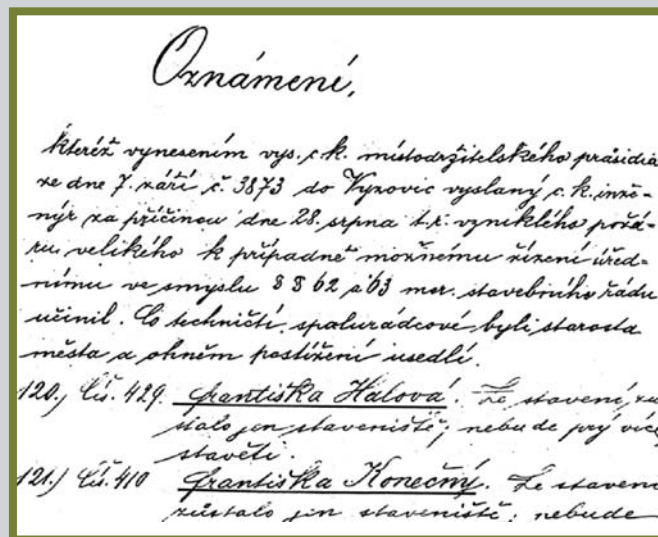 Oznámení,
kteréž vynesením vys. c. k. místodržitelského präsidia
ze dne 7. září č. 3873 do Vyzovic vyslaný c. k. inže-
nýr za příčinou dne 28. srpna t. r. vzniklého požá-
ru velikého k případně možnému řízení úřed-
nímu ve smyslu § § 62 a 63 mor. stavebního řádu
učinil. Co techničtí spolurádcové byli starosta
města a ohněm postižení usedlí.
120.) Čís. 429. Františka Hálová. Ze stavení, zů
stalo jen staveniště; nebude prý více
stavěti.
121.) Čís. 410 Františka Konečný. Ze stavení
zůstalo jen staveniště; nebude